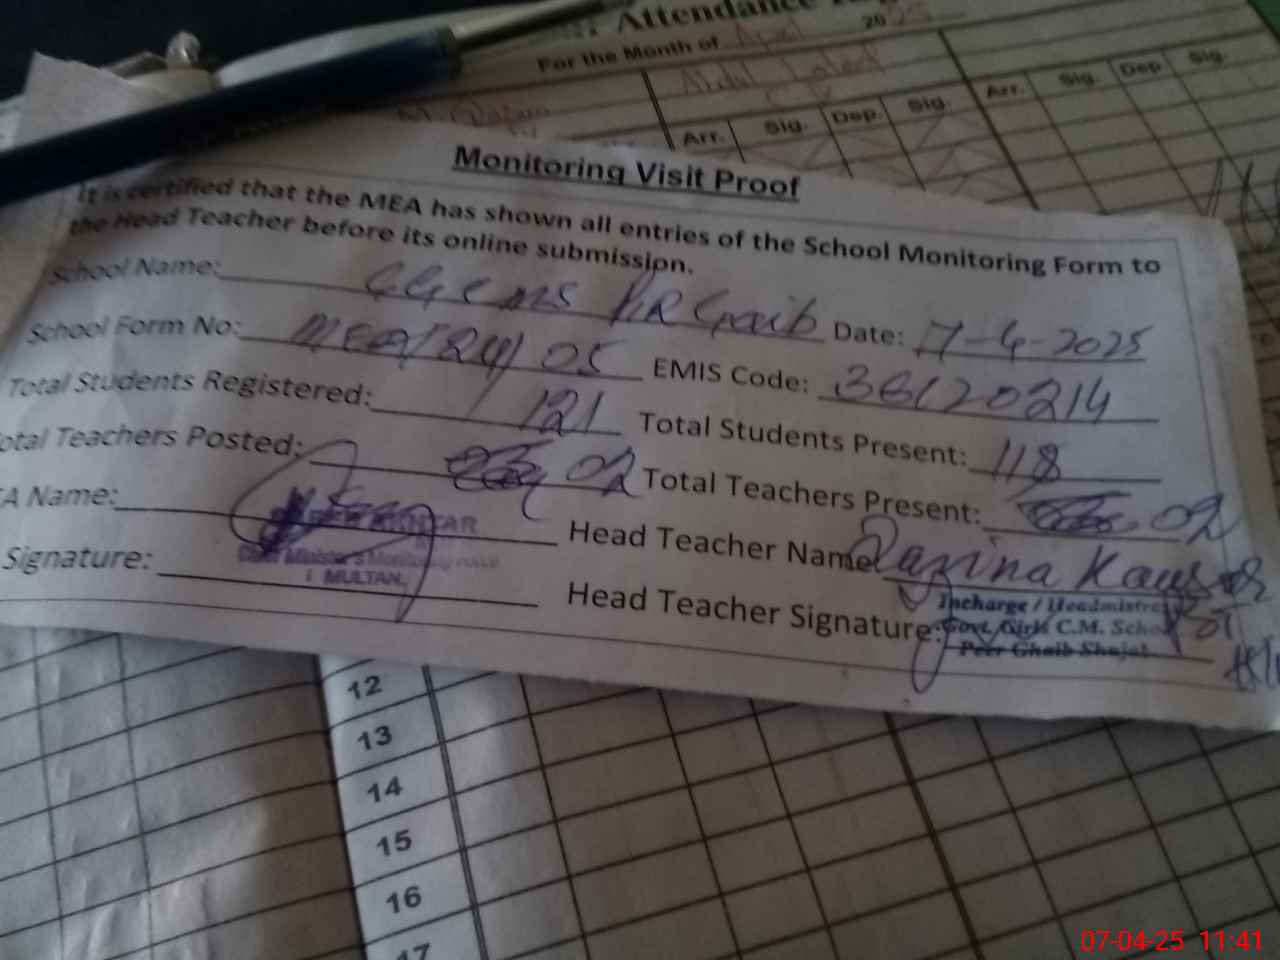 Attendance
For the Month of April 2025
Arr. Sig. Dep. Sig. Arr. Sig. Dep Sig.
Monitoring Visit Proof
It is certified that the MEA has shown all entries of the School Monitoring Form to
the Head Teacher before its online submission.
School Name: GGCMS PIR Gaib Date: 7-4-2025
School Form No: MEA/ 05 EMIS Code: 36120214
Total Students Registered: 121 Total Students Present: 118
otal Teachers Posted: 02 Total Teachers Present: 02
A Name: Head Teacher Name Razina Kausar
AKHTAR
Chief Minister's Monitoring Force
MULTAN.
Signature: Head Teacher Signature:
Incharge / Headmistre
Govt. Girls C.M. Scho
Peer Ghaib Shujat
12
13
14
15
16
17
07-04-25 11:41